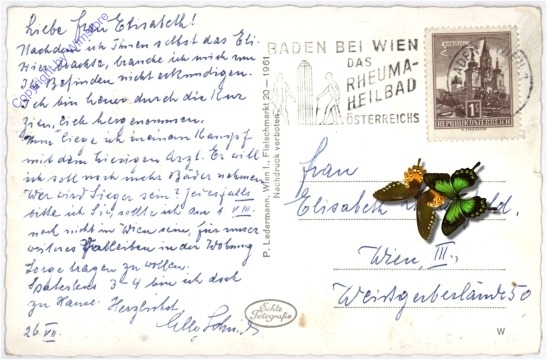 Liebe Frau Elisabeth!
Nachdem ich Ihnen selbst das Eli-
brachte, brauche ich mich um
Ihr Befinden nicht erkundigen.
Ich bin heuer durch die Kur
ziemlich hergenommen.
liege ich in einem Kampf
mit dem hiesigen Arzt. Er will
ich soll noch mehr Bäder nehmen
Wer wird Sieger sein? jedenfalls
bitte ich Sie, sollte ich am 1. VIII.
noch nicht in Wien sein, für unser
weiteres Verbleiben in der Wohnung
Sorge tragen zu wollen.
Spätestens 3-4 bin ich doch
zu Hause. Herzlichst
26 VII.
Copyright by Wimstore
P. Ledermann, Wien I., Fleischmarkt 20 - 1961
Nachdruck verboten
BADEN BEI WIEN
DAS
RHEUMA-
HEILBAD
ÖSTERREICHS
BADEN
WIEN
1S
REPUBLIK ÖSTERREICH
Frau
Elisabeth
Wien, III.,
Weissgerberlände 50
Echte
Fotografie
W